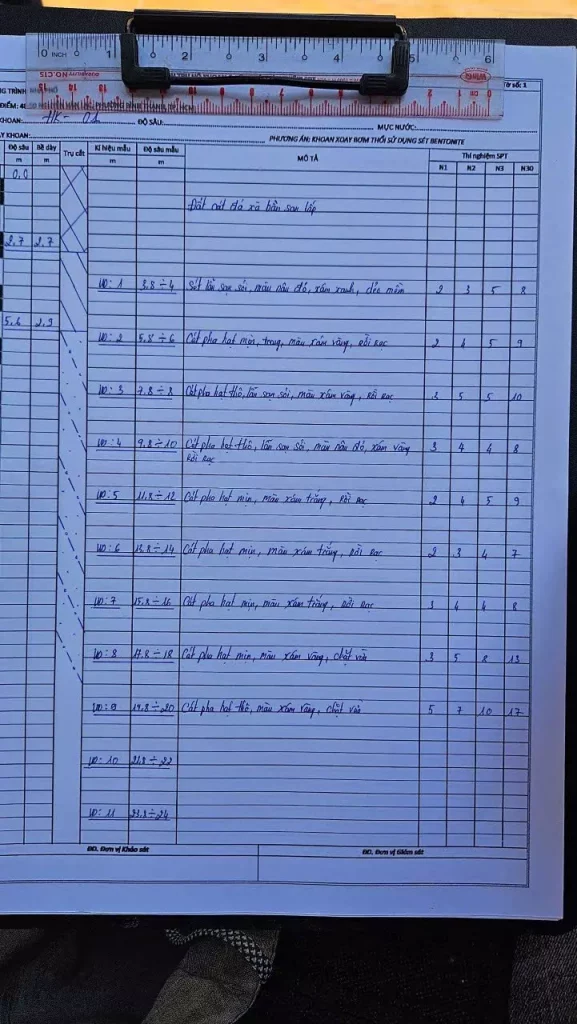 0 INCH 1 2 3 4 5 6
Tờ số: 1
MỰC NƯỚC:
KHOAN: HK - 01 ĐỘ SÂU:
KHOAN: PHƯƠNG ÁN: KHOAN XOAY BƠM THỔI SỬ DỤNG SÉT BENTONITE
Độ sâu Bề dày Trụ cắt Kí hiệu mẫu Độ sâu mẫu MÔ TẢ Thí nghiệm SPT
m m m m N1 N2 N3 N30
0.0
Đất nát đá xà bần san lấp
2.7 2.7
UD: 1 3.8 ÷ 4 Sét lẫn sạn sỏi, màu nâu đỏ, xám xanh, dẻo mềm 2 3 5 8
5.6 2.9
UD: 2 5.8 ÷ 6 Cát pha hạt mịn, trung, màu xám vàng, Rời Rạc 2 4 5 9
UD: 3 7.8 ÷ 8 Cát pha hạt thô, lẫn sạn sỏi, màu xám vàng, Rời Rạc 3 5 5 10
UD: 4 9.8 ÷ 10 Cát pha hạt thô, lẫn sạn sỏi, màu nâu đỏ, xám vàng 3 4 4 8
Rời Rạc
UD: 5 11.8 ÷ 12 Cát pha hạt mịn, màu xám trắng, Rời Rạc 2 4 5 9
UD: 6 13.8 ÷ 14 Cát pha hạt mịn, màu xám trắng, Rời Rạc 2 3 4 7
UD: 7 15.8 ÷ 16 Cát pha hạt mịn, màu xám trắng, Rời Rạc 3 4 4 8
UD: 8 17.8 ÷ 18 Cát pha hạt mịn, màu xám vàng, chặt vừa 3 5 8 13
UD: 9 19.8 ÷ 20 Cát pha hạt thô, màu xám vàng, chặt vừa 5 7 10 17
UD: 10 21.8 ÷ 22
UD: 11 23.8 ÷ 24
ĐD. Đơn vị Khảo sát ĐD. Đơn vị Giám sát